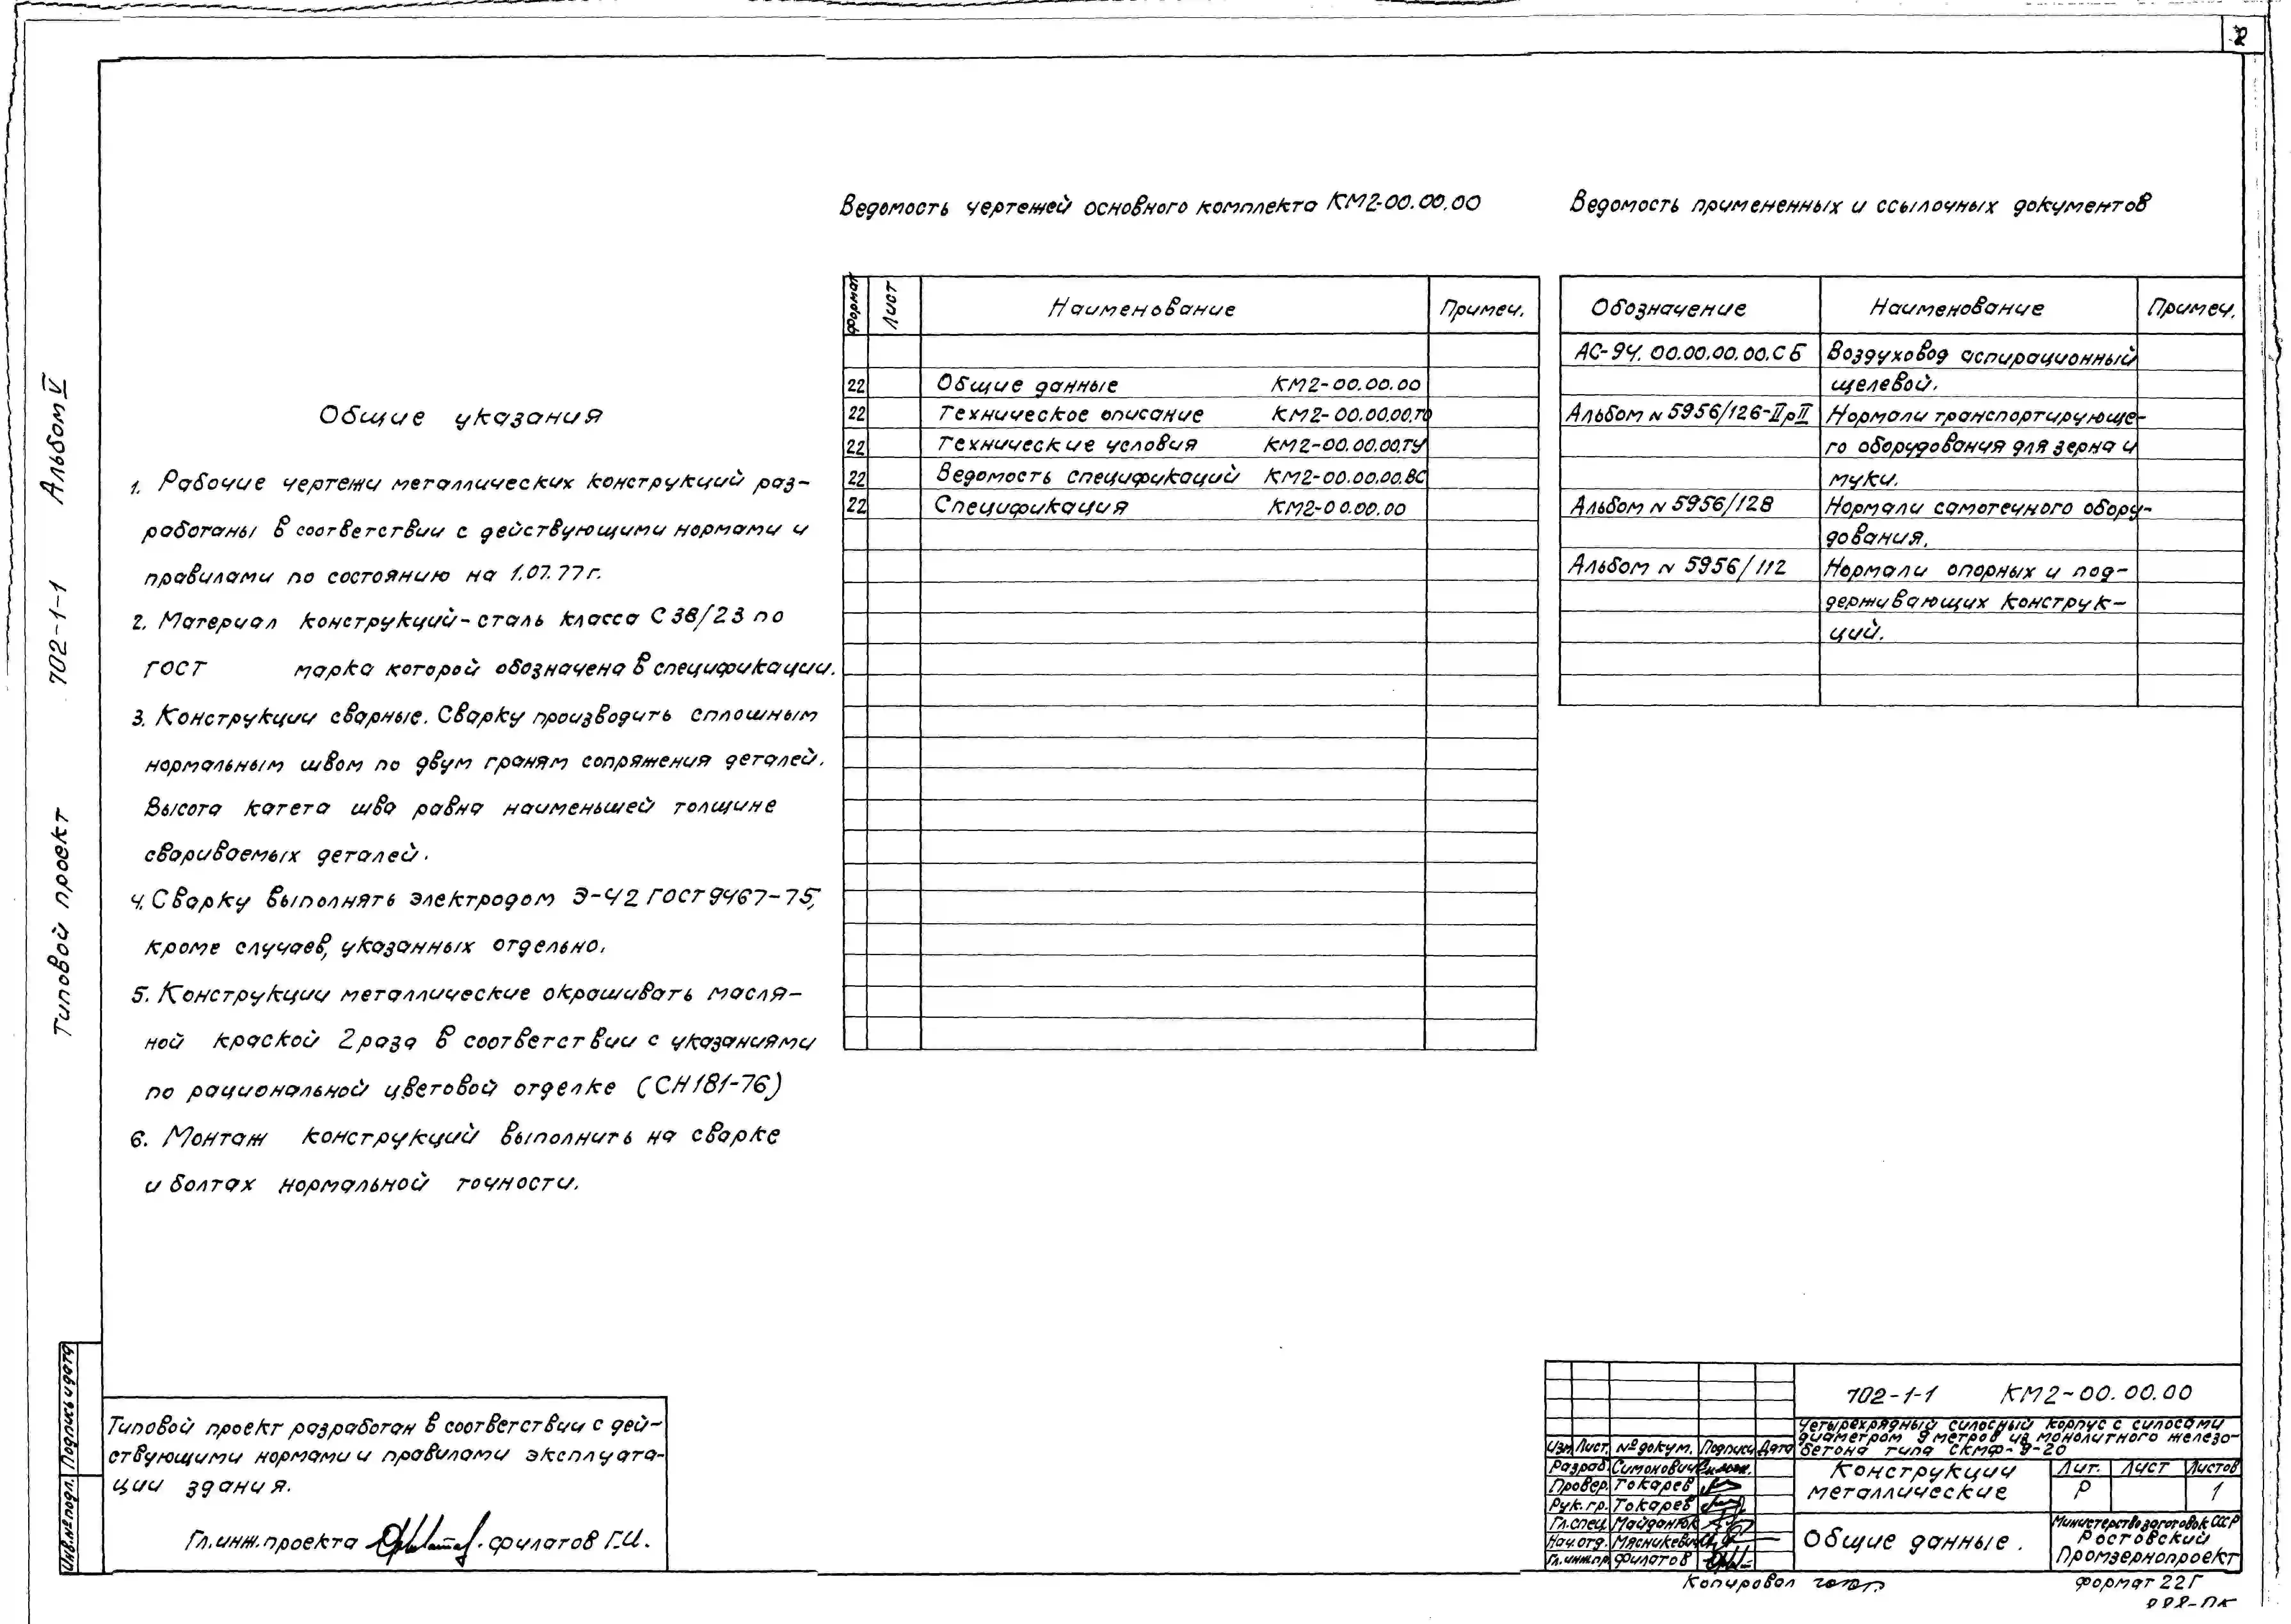 2
Альбом V
702-1-1
Типовой проект
Общие указания
1. Рабочие чертежи металлических конструкций раз-
работаны в соответствии с действующими нормами и
правилами по состоянию на 1.07.77г.
2. Материал конструкций-сталь класса С38/23 по
ГОСТ марка которой обозначена в спецификации.
3. Конструкции сварные. Сварку производить сплошным
нормальным швом по двум граням сопряжения деталей.
Высота катета шва равна наименьшей толщине
свариваемых деталей.
4. Сварку выполнять электродом Э-42 ГОСТ 9467-75,
кроме случаев, указанных отдельно.
5. Конструкции металлические окрашивать масля-
ной краской 2 раза в соответствии с указаниями
по рациональной цветовой отделке (СН181-76)
6. Монтаж конструкций выполнить на сварке
и болтах нормальной точности.
Ведомость чертежей основного комплекта КМ2-00.00.00
Формат Лист Наименование Примеч.
22 Общие данные КМ2-00.00.00
22 Техническое описание КМ2-00.00.00.ТО
22 Технические условия КМ2-00.00.00.ТУ
22 Ведомость спецификаций КМ2-00.00.00.ВС
22 Спецификация КМ2-00.00.00
Ведомость примененных и ссылочных документов
Обозначение Наименование Примеч.
АС-94.00.00.00.00.СБ Воздуховод аспирационный
щелевой.
Альбом №5956/126-IIрII Нормали транспортирующе-
го оборудования для зерна и
муки.
Альбом №5956/128 Нормали самотечного обору-
дования.
Альбом №5956/112 Нормали опорных и под-
держивающих конструк-
ций.
Подпись и дата
Инв.№ подл.
Типовой проект разработан в соответствии с дей-
ствующими нормами и правилами эксплуата-
ции здания.
Гл.инж.проекта Филатов Г.И.
702-1-1 КМ2-00.00.00
Четырехрядный силосный корпус с силосами
диаметром 9 метров из монолитного железо-
бетона типа СКМФ-9-20
Изм Лист № докум. Подпись Дата
Разраб. Симонович
Провер. Токарев
Рук.гр. Токарев
Гл.спец. Майданюк
Нач.отд. Мясникевич
Гл.инж.пр Филатов
Конструкции
металлические
Лит. Лист Листов
Р 1
Общие данные.
Министерство заготовок СССР
Ростовский
Промзернопроект
Копировал
Формат 22Г